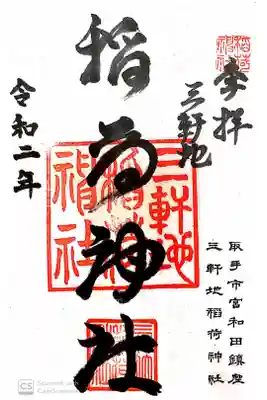 奉拝
三軒地
稲荷神社
令和二年
取手市宮和田鎮座
三軒地稲荷神社
三軒地
稲荷
神社
稲荷
神社
CS Scanned with
CamScanner